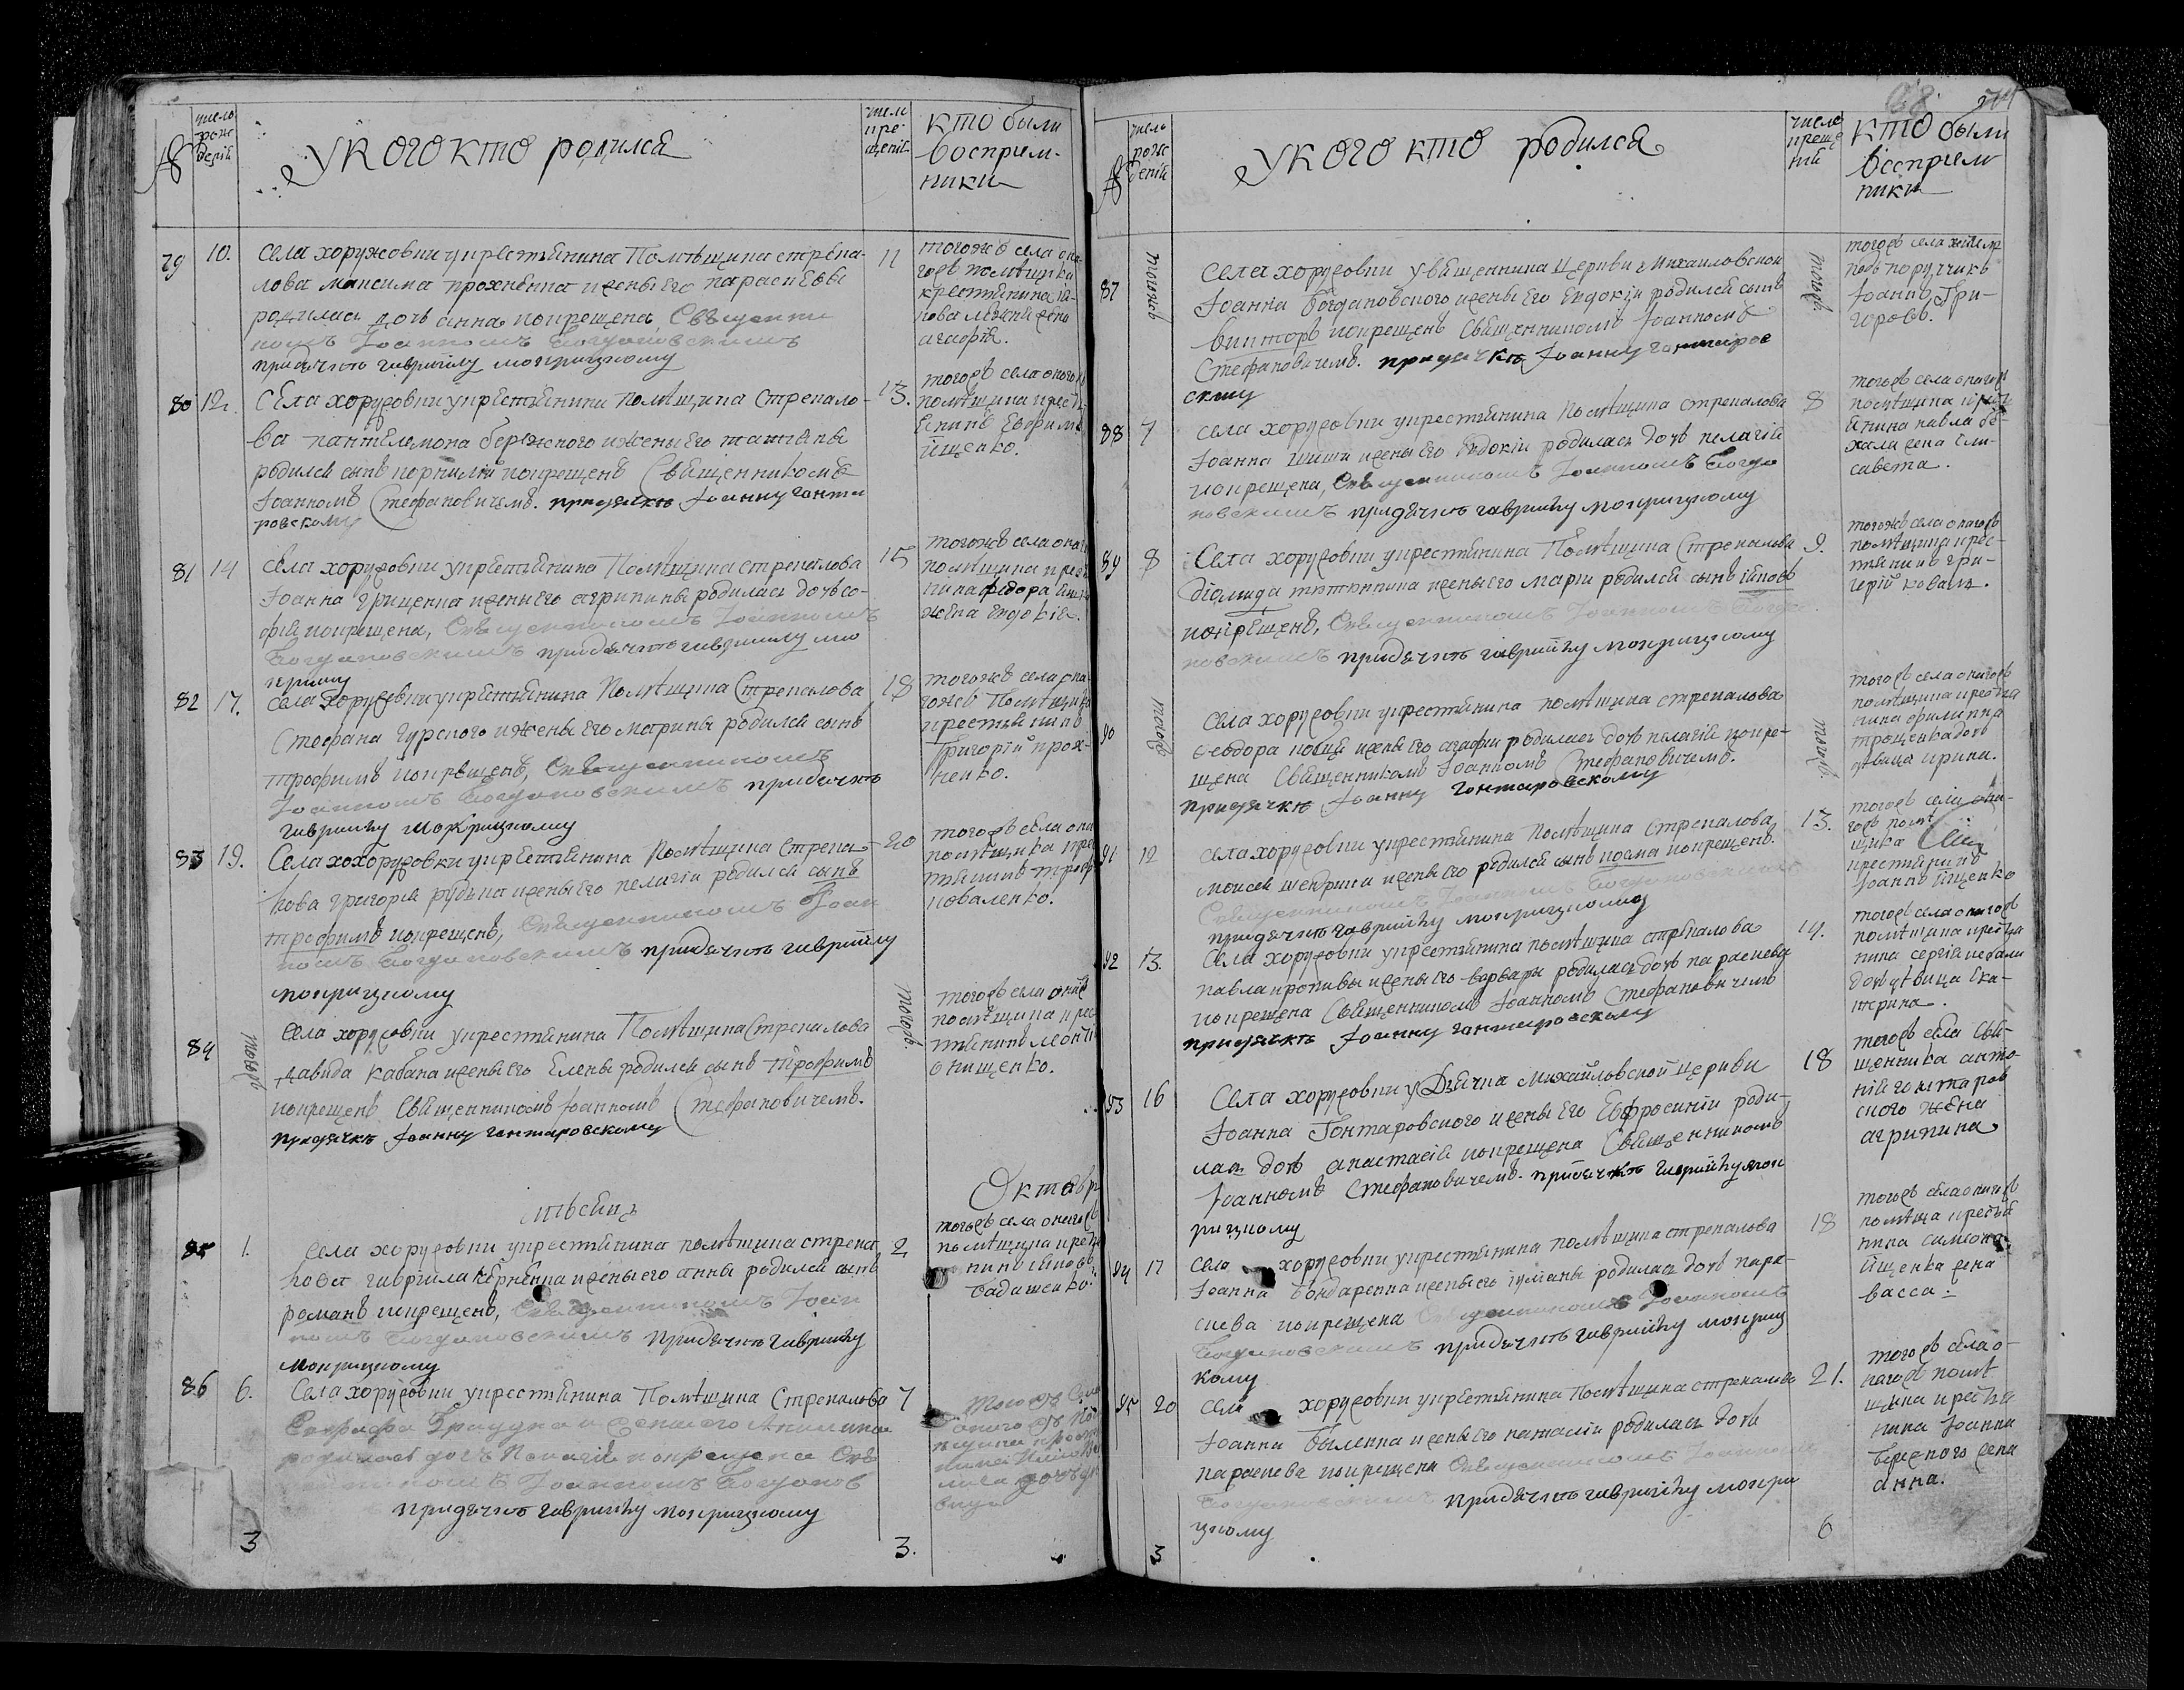 №
число
рож
деній
У КОГО КТО родился
число
кре
щенія
кто были
восприем-
ники
79
10.
села хоружовки укрестянина Помѣщика стрека-
лова максима прохненка и жены Его параскевы
родилась дочь анна покрещена, Священни
комъ Іоанномъ Богдановскимъ
придячкѣ гавріилу мокрицкому
11
тогожъ села она
гожъ помѣщика
крестянина
агафія.
80
12.
Села хоружовки укрестянина Помѣщика Стрекало-
ва пантелемона бережного и жены Его татіяны
родился сынъ корнилій покрещенъ Священникомъ
Іоанномъ Стефановичемъ. придячкѣ Іоанну гонта
ровскому
13.
тогожъ села оного
помѣщика крест
Ефимъ
ищенко.
81
14
села хоружовки укрестянина Помѣщика стрекалова
Іоанна Грищенка и жены Его агрипины родилась дочь со-
фія покрещена, Священникомъ Іоанномъ
Богдановскимъ придячкѣ гавріилу мо
крицк
15
тогожъ села оного
помѣщика крест
нина федора
жена Евдокія.
82
17.
села Хоружовки укрестянина Помѣщика Стрекалова
Стефана гурского и жены Его матрины родился сынъ
трофимъ покрещенъ, Священникомъ
Іоанномъ Богдановскимъ придячкѣ
гавріилу Мокрицкому
18
тогожъ села она-
гожъ Помѣщика
крестянинъ
Григорій прох-
ненко.
83
19.
Села хохоружовки укрестянина Помѣщика Стрека-
лова григорія рудька и жены Его пелагіи родился сынъ
трофимъ покрещенъ, Священникомъ Іоан
номъ Богдановскимъ придячкѣ гавріилу
мокрицкому
20
тогожъ села она
помѣщика кре
тянинъ трофи
коваленко.
84
тогожъ
села хоружовки укрестянина Помѣщика Стрекалова
давида кабана и жены Его Елены родился сынъ трофимъ
покрещенъ Священникомъ Іоанномъ Стефановичемъ.
придячкѣ Іоанну гонтаровскому
тогожъ
тогожъ села
помѣщика крес
тянинъ леонті
онищенко.
мѣсяцъ
Октябр
85
1.
села хоружовки укрестянина помѣщика стрека
лова гавріила керненка и жены его анны родился сынъ
романъ покрещенъ, Священникомъ Іоан
номъ Богдановскимъ придячкѣ гавріилу
мокрицкому
2
тогожъ села оногожъ
помѣщика крест
нинъ
бадашенко
86
6.
Села хоружовки укрестянина Помѣщика Стрекалова
и жены его Акилины
родилась дочь Пелагія покрещена Свя
щенникомъ Іоанномъ Богданов
придячкѣ гавріилу мокрицкому
7
Тогожъ Села
оного жъ По
3
3.
68
№
число
рож
деній
У КОГО КТО родился
число
креще
ній
кто были
восприем
ники
87
тогожъ
Села хоружовки у Священника Церкви Михайловской
Іоанна Богдановского и жены Его Евдокіи родился сынъ
Викторъ покрещенъ Священникомъ Іоанномъ
Стефановичемъ. придячкѣ Іоанну гонтаров
скому
тогожъ
тогожъ села жител
подпоручикъ
Іоаннъ Гри-
горовъ.
88
7
села хоружовки укрестянина Помѣщика стрекалова
Іоанна шиша и жены Его Евдокіи родилась дочь пелагія
покрещена, Священникомъ Іоанномъ Богда
новскимъ придячкѣ гавріилу мокрицкому
8
тогожъ села оногожъ
помѣщика крест
янина павла бе-
хала жена Ели-
савета.
89
8
Села хоружовки укрестянина Помѣщика Стрекалова
діомида титинника и жены его маріи родился сынъ іяковъ
покрещенъ, Священникомъ Іоанномъ Богда
новскимъ придячкѣ гавріилу мокрицкому
9.
тогожъ села оногожъ
помѣщика крес-
тянинъ гри-
горій коваль.
90
тогожъ
села хоружовки укрестянина помѣщика стрекалова
феодора и жены Его агафіи родилась дочь пелагія покре-
щена Священникомъ Іоанномъ Стефановичемъ.
придячкѣ Іоанну гонтаровскому
тогожъ
тогожъ села оногожъ
помѣщика крестя
нина филиппа
трощенка дочь
дѣвица ирина.
91
12
села хоружовки укрестянина Помѣщика Стрекалова
моисея щекрика и жены Его родился сынъ козма покрещенъ.
Священникомъ Іоанномъ Богдановскимъ
придячкѣ гавріилу мокрицкому
13.
тогожъ села она-
гожъ помѣ
щика
крестянинъ
Іоаннъ ищенко
92
13.
Села хоружовки укрестянина помѣщика стрекалова
павла кропивы и жены Его варвары родилась дочь параскева
покрещена Священникомъ Іоанномъ Стефановичемъ
придячкѣ Іоанну гонтаровскому
14.
тогожъ села оногожъ
помѣщика крестья
нина сергія
дочь дѣвица Ека-
терина.
93
16
Села хоружовки у Дьячка Михайловской церкви
Іоанна Гонтаровского и жены Его Евфросиніи роди-
лась дочь анастасія покрещена Священникомъ
Іоанномъ Стефановичемъ. придячкѣ гавріилу мок
рицкому
18
тогожъ села Свя-
щенника анто-
нія гонтаров
ского жена
агрипина
94
17
села хоружовки укрестянина помѣщика стрекалова
Іоанна бондаренка и жены его іуліаны родилась дочь пара-
скева покрещена Священникомъ Іоанномъ
Богдановскимъ придячкѣ гавріилу мокриц
кому
18
тогожъ села оногожъ
помѣща крестья
нина симеона
ищенка жена
васса.
95
20
села хоружовки укрестянина Помѣщика стрекалова
Іоанна Быленка и жены Его наталіи родилась дочь
параскева покрещена Священникомъ Іоанномъ
Богдановскимъ придячкѣ гавріилу мокри
цкому
21.
тогожъ села о-
ногожъ помѣ
щика крестья
нина Іоанна
Бережного жена
анна.
3
6